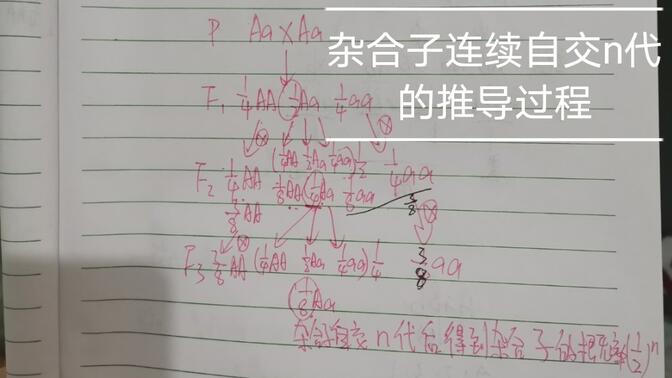 杂合子连续自交n代
的推导过程
P Aa×Aa
F₁ 1/4AA 1/2Aa 1/4aa
(1/4AA 1/2Aa 1/4aa)1/2 1/4aa
F₂ 1/4AA 1/8AA 1/4Aa 1/8aa
3/8AA 3/8
F₃ 3/8AA (1/4AA 1/2Aa 1/4aa)1/4 3/8aa
1/8Aa
杂合自交n代后得到杂合子的概率(1/2)ⁿ